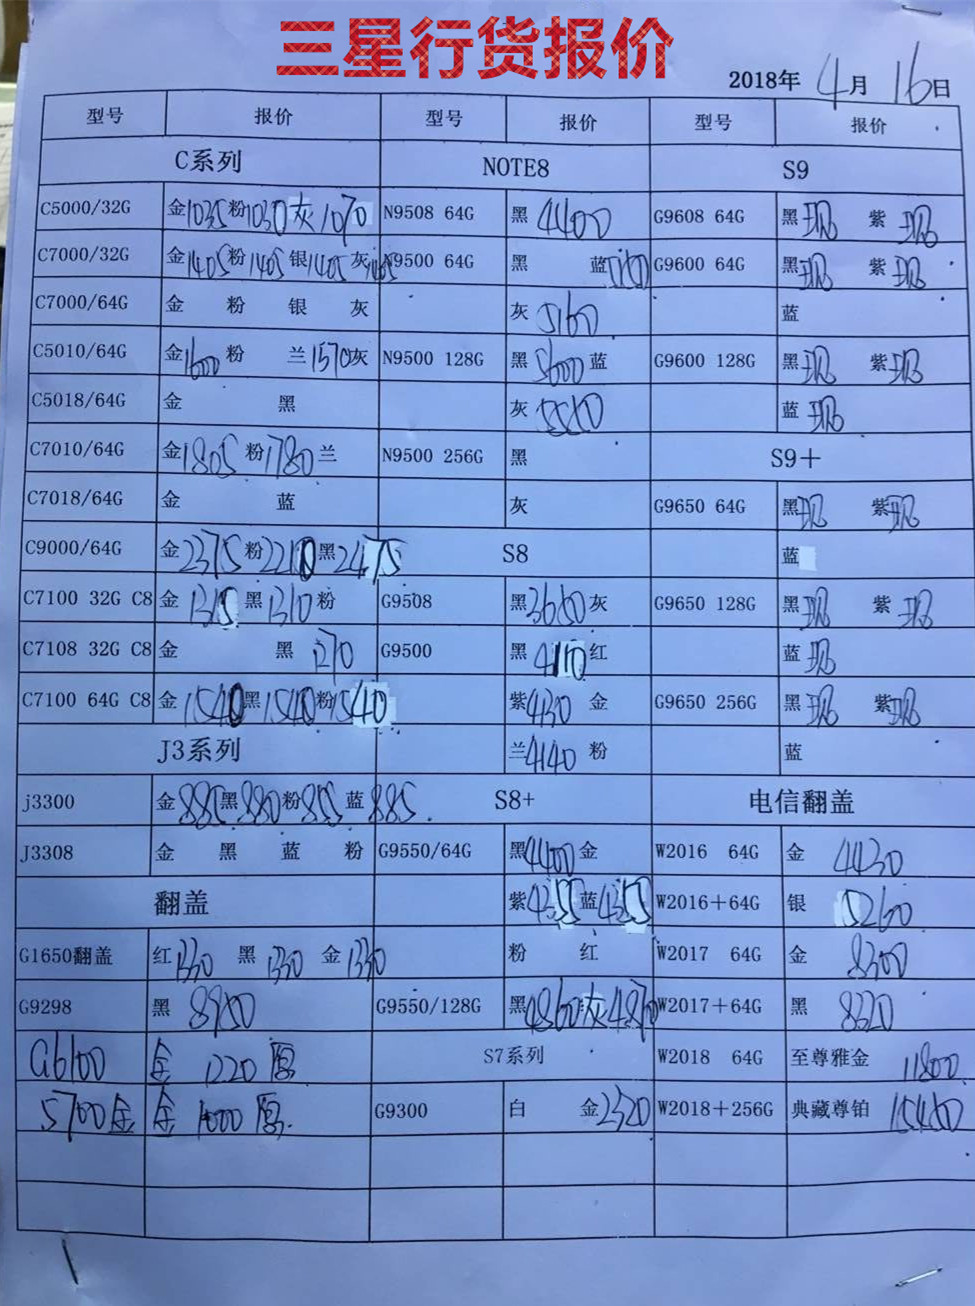 三星行货报价
2018年 4月 16日
型号 报价 型号 报价 型号 报价
C系列 NOTE8 S9
C5000/32G 金1035 粉1030 灰1070 N9508 64G 黑 4400 G9608 64G 黑 现 紫 现
C7000/32G 金1405 粉1405 银1405 灰1405 N9500 64G 黑 蓝 G9600 64G 黑 现 紫 现
C7000/64G 金 粉 银 灰 灰 5160 蓝
C5010/64G 金1600 粉 兰1570 灰 N9500 128G 黑 5600 蓝 G9600 128G 黑 现 紫 现
C5018/64G 金 黑 灰 5550 蓝 现
C7010/64G 金1805 粉1780 兰 N9500 256G 黑 S9+
C7018/64G 金 蓝 灰 G9650 64G 黑 现 紫 现
C9000/64G 金2375 粉2210 黑2475 S8 蓝
C7100 32G C8 金1315 黑1310 粉 G9508 黑3650 灰 G9650 128G 黑 现 紫 现
C7108 32G C8 金 黑 1270 G9500 黑 4110 红 蓝 现
C7100 64G C8 金1540 黑1540 粉1540 紫4130 金 G9650 256G 黑 现 紫 现
J3系列 兰4140 粉 蓝
j3300 金885 黑880 粉855 蓝885 S8+ 电信翻盖
J3308 金 黑 蓝 粉 G9550/64G 黑4400 金 W2016 64G 金 4430
翻盖 紫4355 蓝4355 W2016+64G 银 5260
G1650翻盖 红1330 黑 1330 金1330 粉 红 W2017 64G 金 8300
G9298 黑 8950 G9550/128G 黑4860 灰4870 W2017+64G 黑 8320
G6100 金 1220 原 S7系列 W2018 64G 至尊雅金 11800
5700金 金 1000 原. G9300 白 金2320 W2018+256G 典藏尊铂 15450